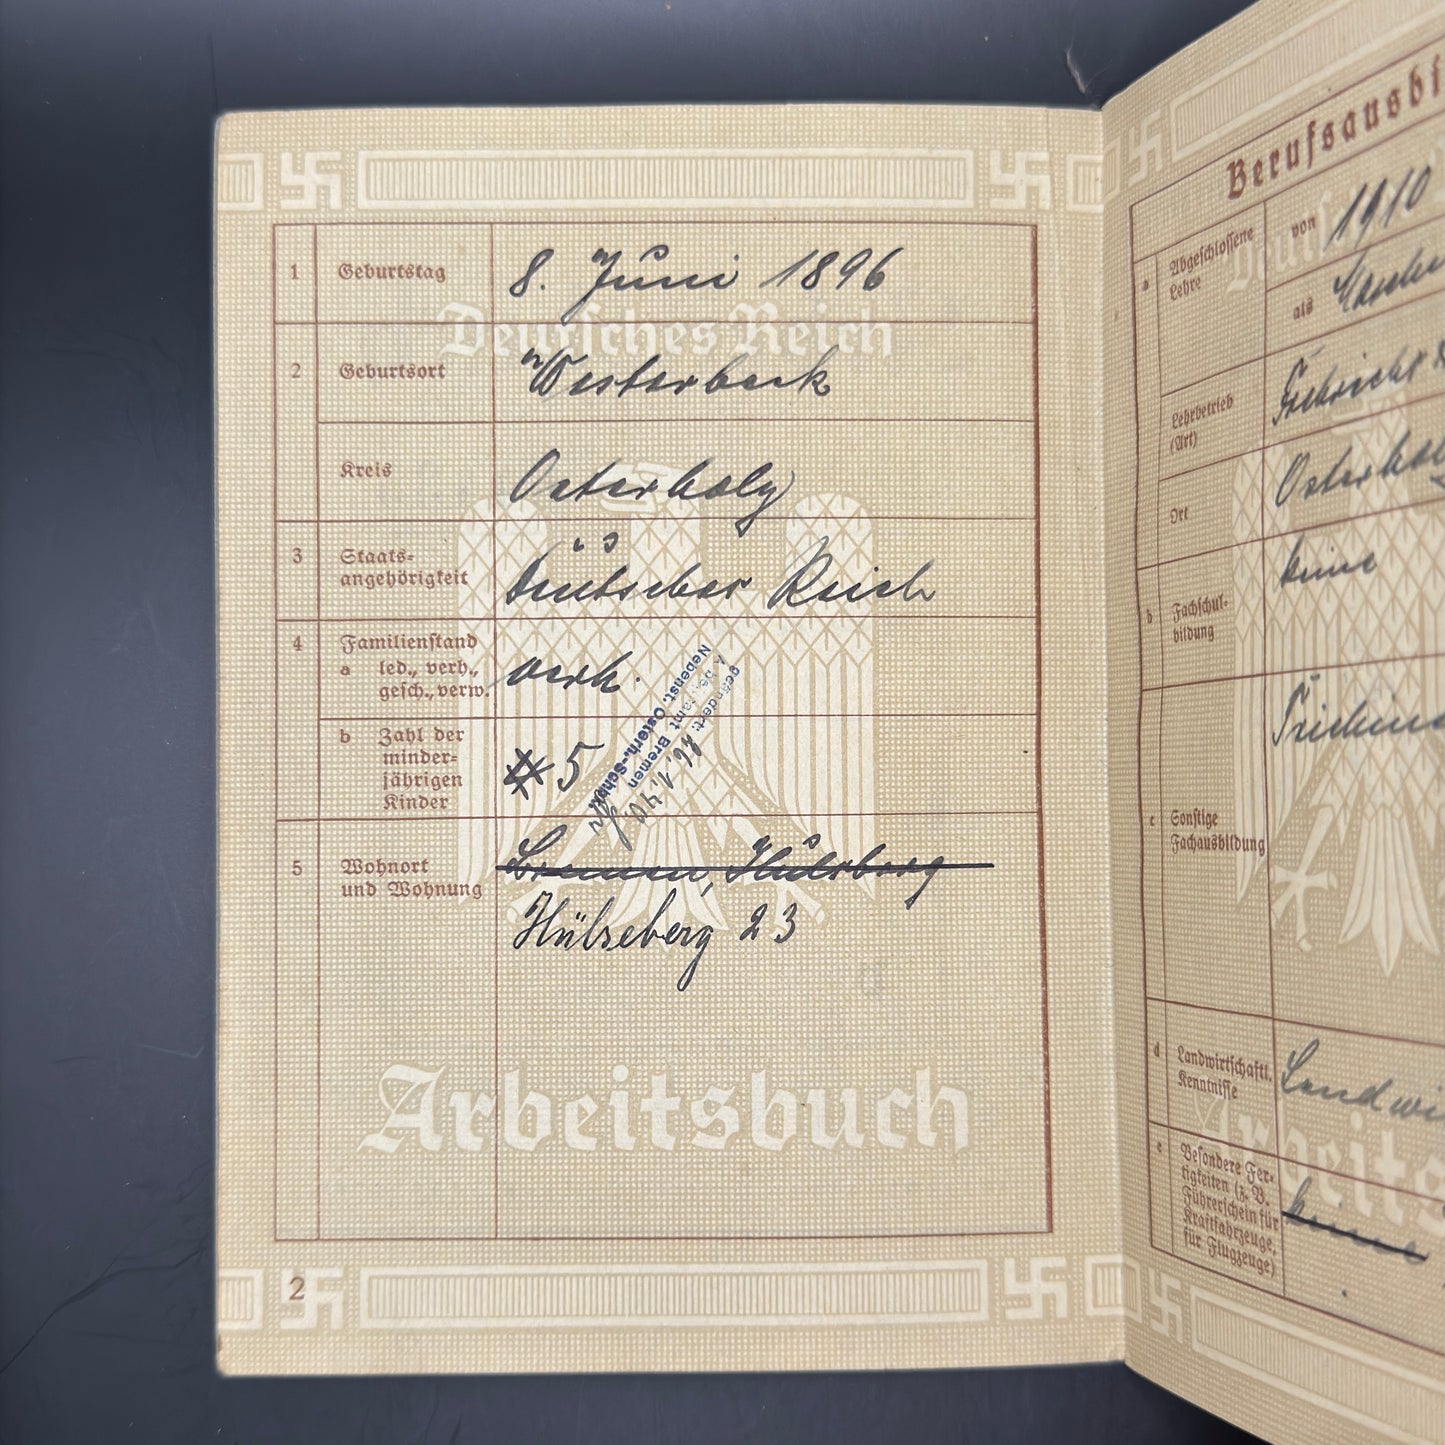 1 Geburtstag 8. Juni 1896
2 Geburtsort Westerbeck
Kreis Osterholz
3 Staats-
angehörigkeit Deutsches Reich
4 Familienstand
a led., verh.,
gesch., verw. verh.
b Zahl der
minder-
jährigen
Kinder 5
geändert:
Arbeitsamt Bremen
Nebenst. Osterh.-Schbk.
5 Wohnort
und Wohnung Bremen,
Hülseberg 23
Deutsches Reich
Arbeitsbuch
2
Berufsausbi
a Abgeschlossene
Lehre
von 1910
als
Lehrbetrieb
(Art)
Ort Osterhol
b Fachschul-
bildung keine
c Sonstige
Fachausbildung
d Landwirtschaftl.
Kenntnisse Landwi
e Besondere Fer-
tigkeiten (z. B.
Führerschein für
Kraftfahrzeuge,
für Flugzeuge) keine